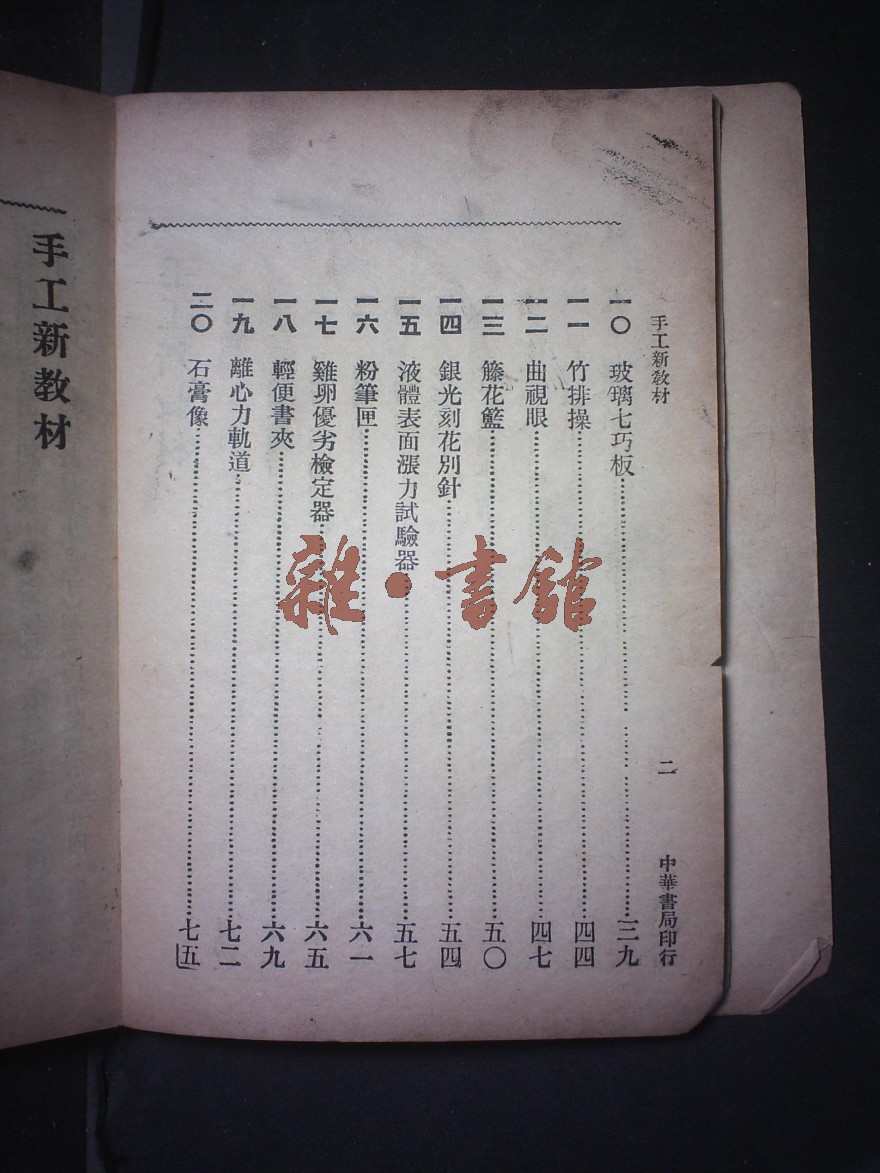 手工新教材
二
中華書局印行
一〇 玻璃七巧板 三九
一一 竹排操 四四
一二 曲視眼 四七
一三 籐花籃 五〇
一四 銀光刻花別針 五四
一五 液體表面漲力試驗器 五七
一六 粉筆匣 六一
一七 雞卵優劣檢定器 六五
一八 輕便書夾 六九
一九 離心力軌道 七二
二〇 石膏像 七五
手工新教材
雜·書館